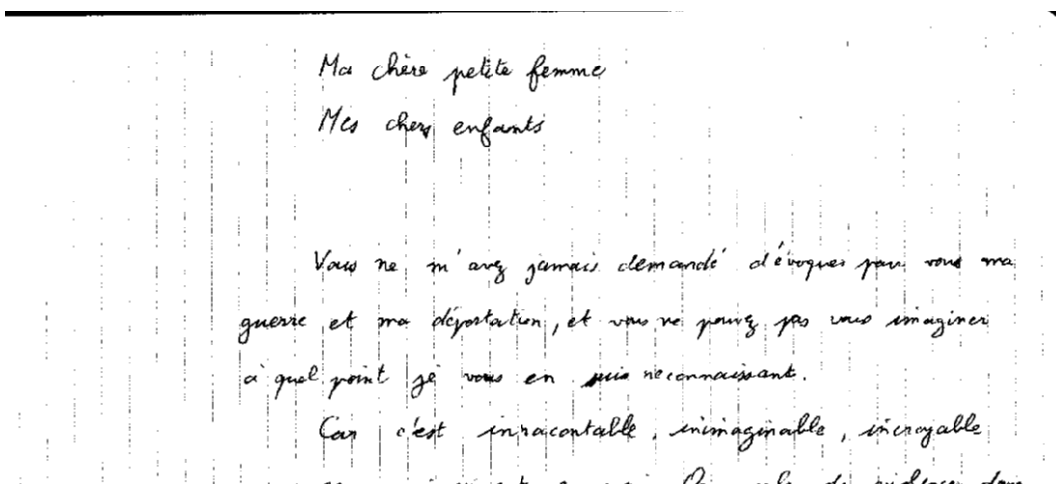 Ma chère petite femme
Mes chers enfants
Vous ne m'avez jamais demandé d'évoquer pour vous ma
guerre et ma déportation, et vous ne pouvez pas vous imaginer
à quel point je vous en suis reconnaissant.
Car c'est inracontable, inimaginable, incroyable